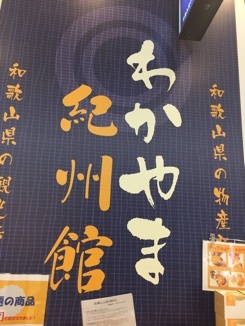 和歌山県の物産
わかやま
紀州館
和歌山県の観光
の商品